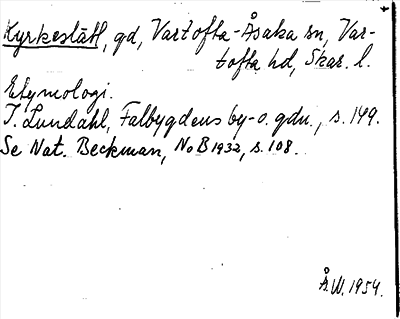 Kyrkeslätt, gd, Vartofta-Åsaka sn, Var-
tofta hd, Skar. l.
Etymologi.
I. Lundahl, Falbygdens by- o. gdn., s. 149.
Se Nat. Beckman, NoB 1932, s. 108.
Å.W. 1954.